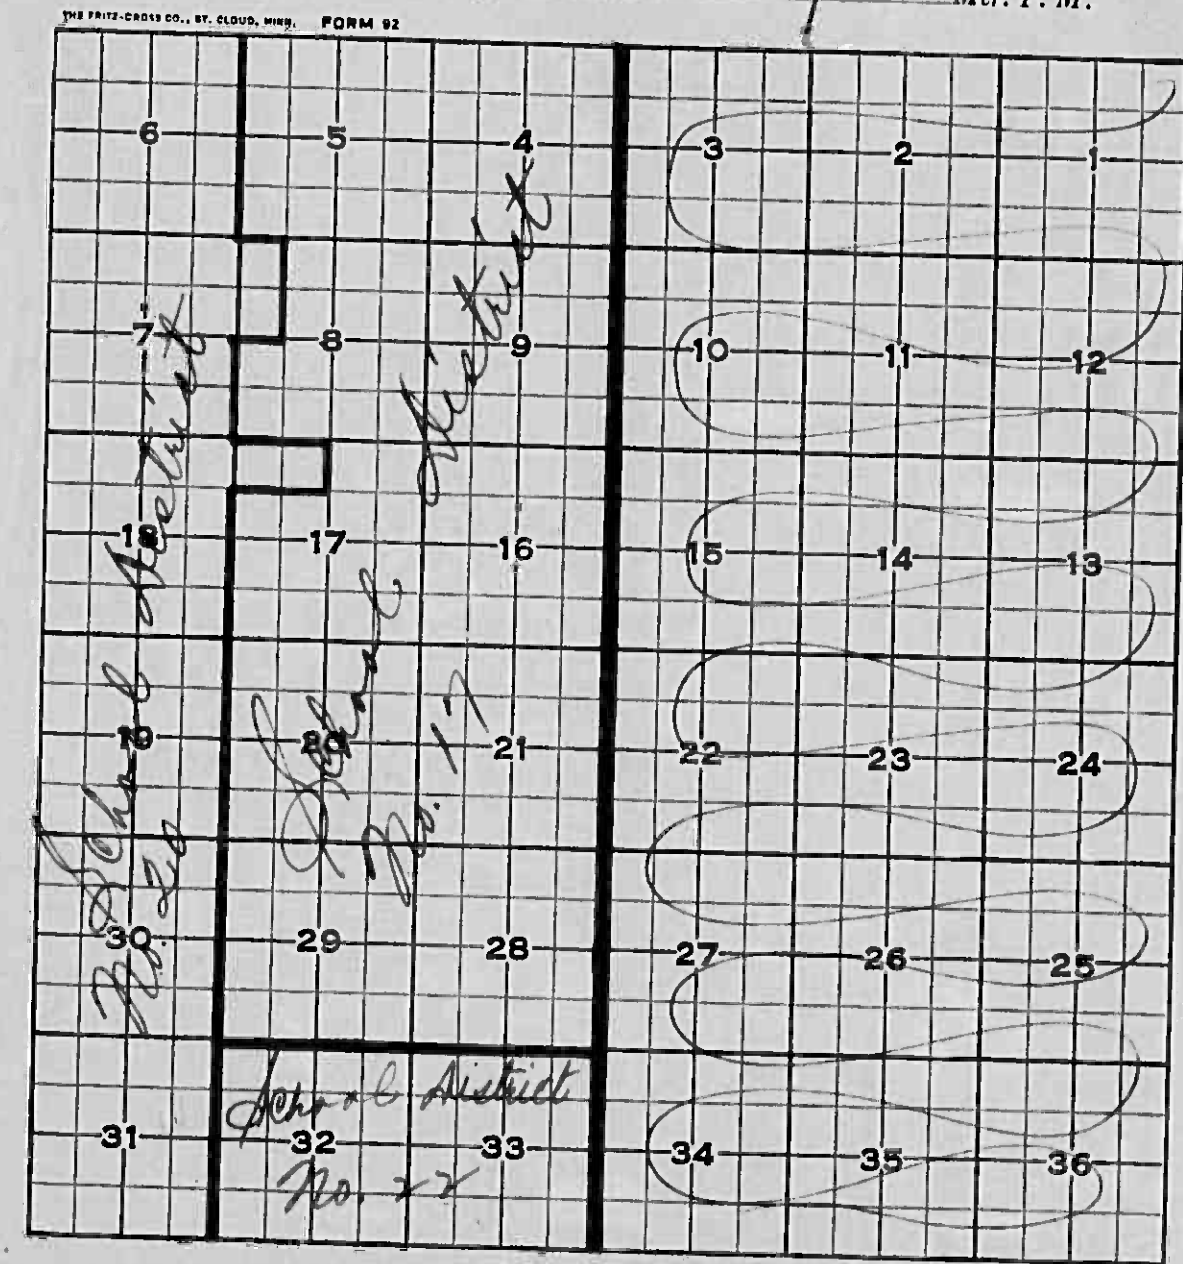 THE FRITZ-CROSS CO., ST. CLOUD, MINN. FORM 92
6 5 4 3 2 1
7 8 9 10 11 12
18 17 16 15 14 13
19 20 21 22 23 24
30 29 28 27 26 25
31 32 33 34 35 36
School District
No. 20
School District
No. 17
School District
No. 22